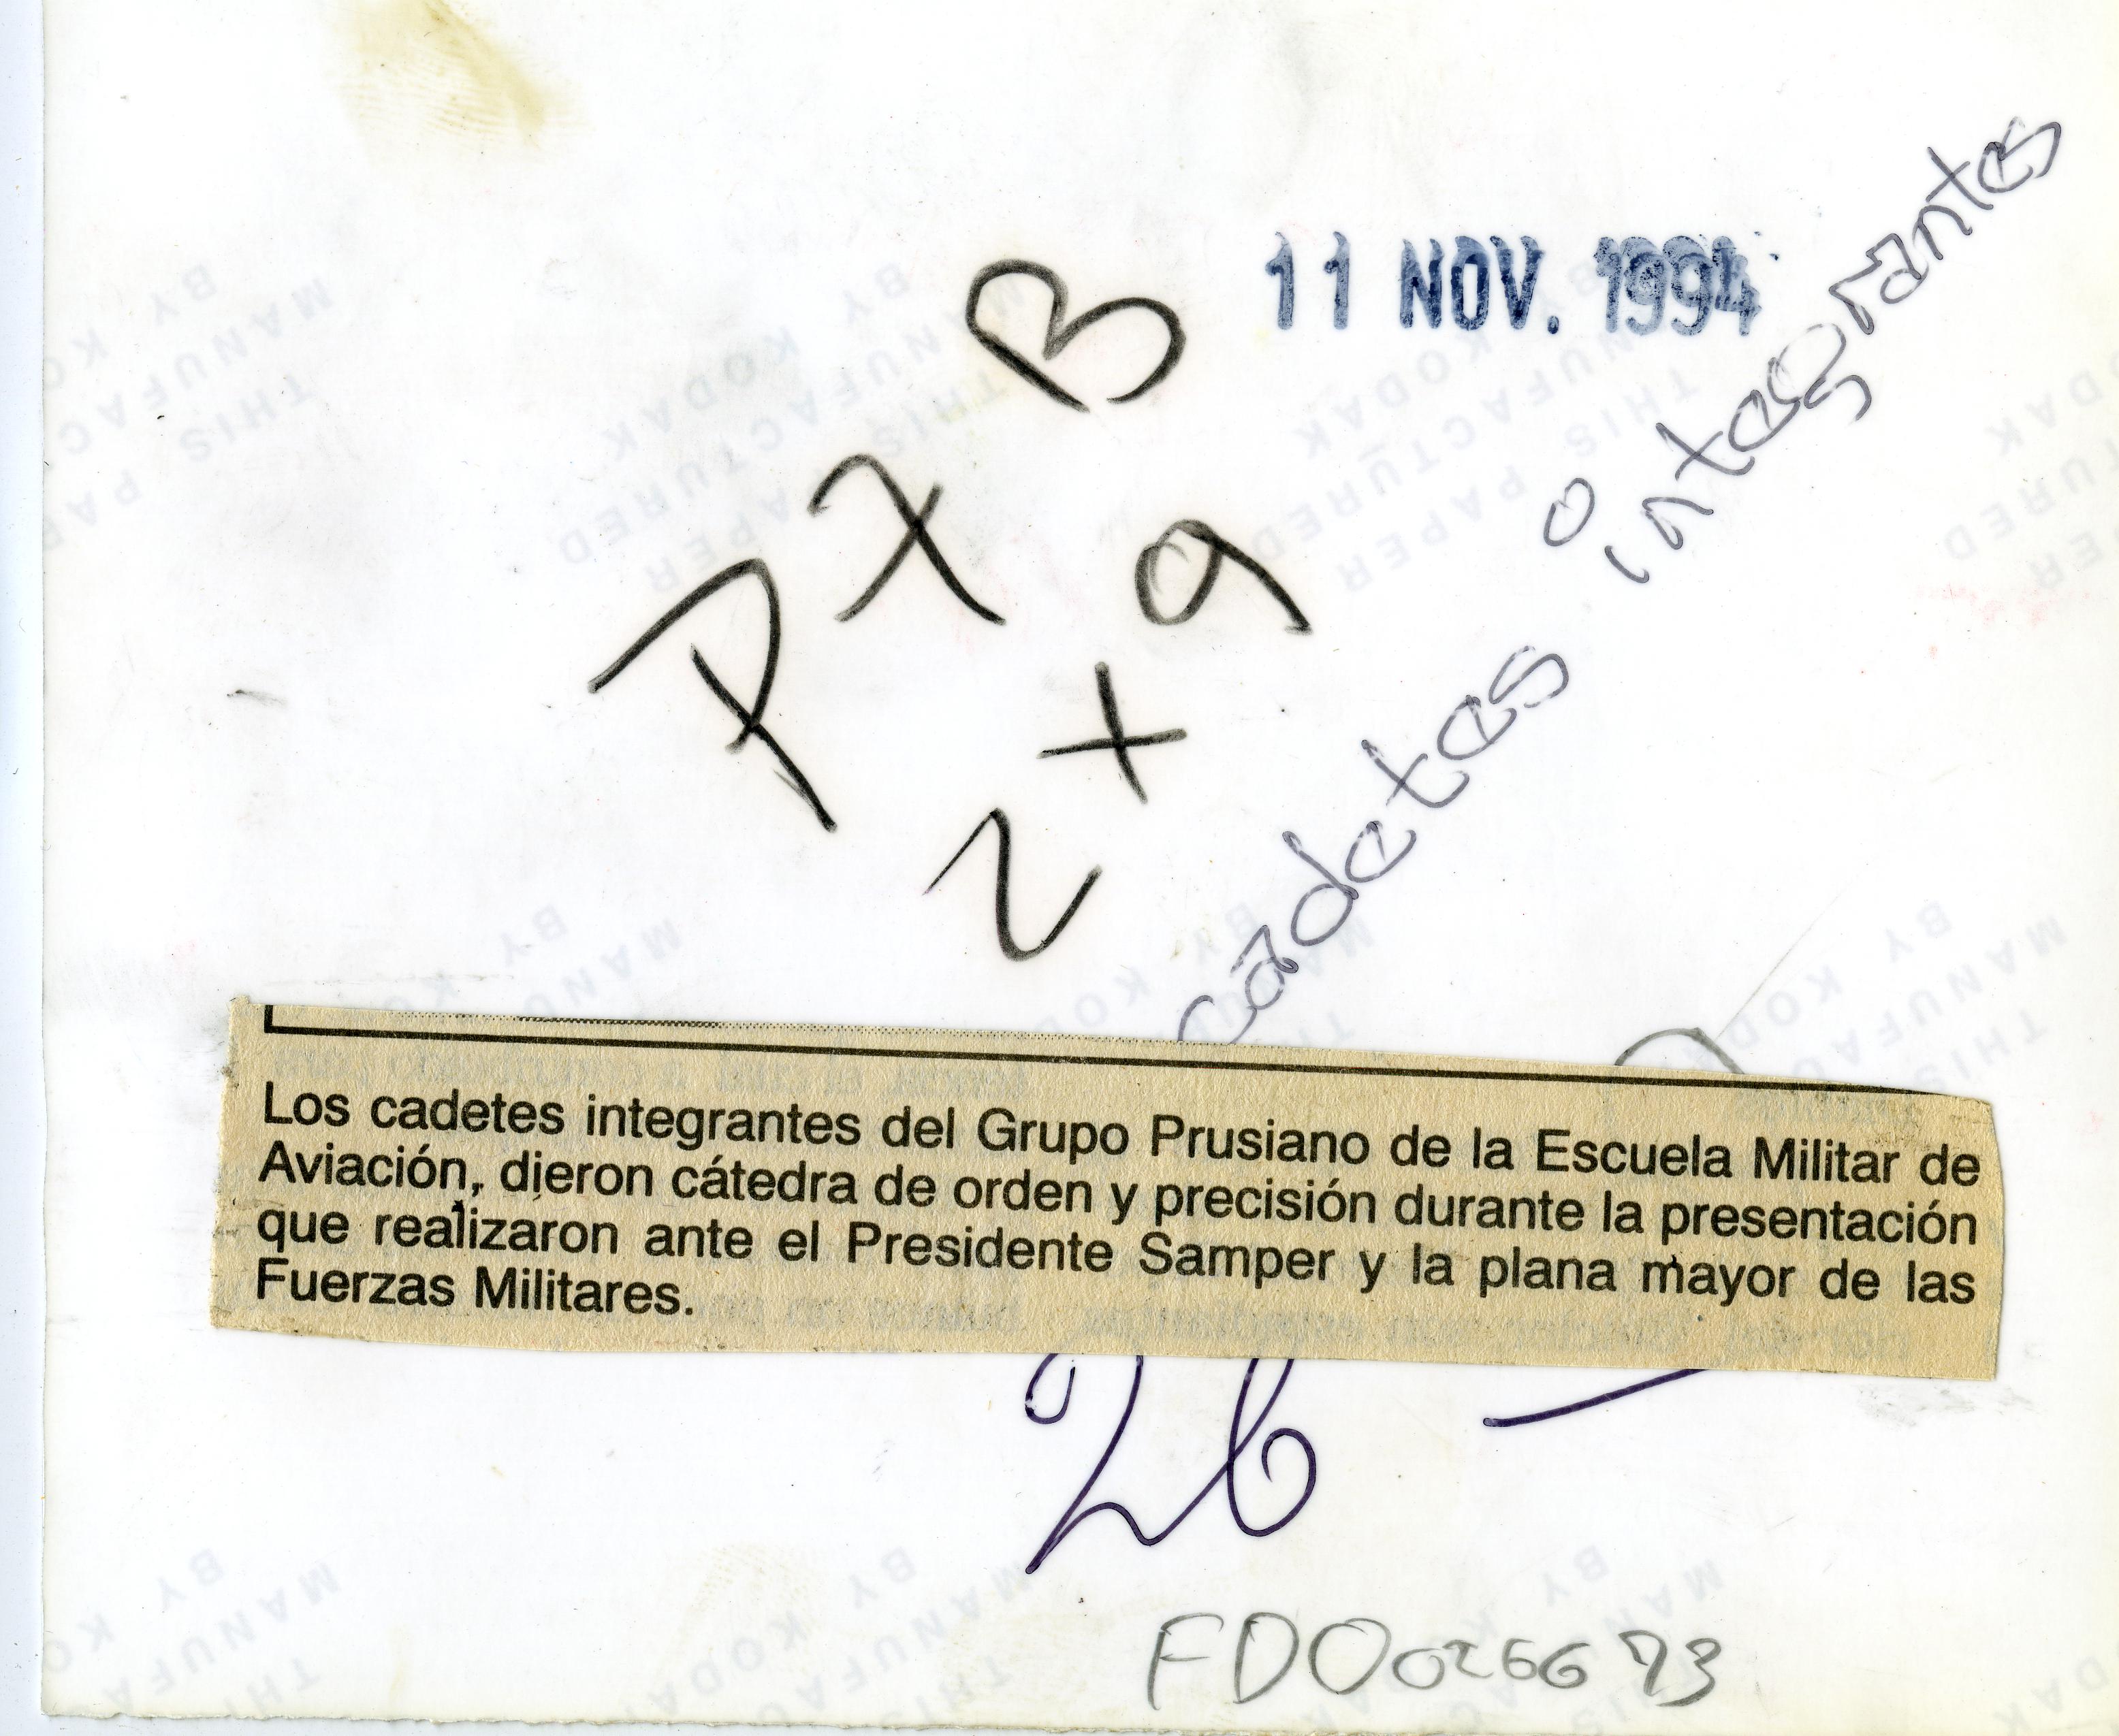 11 NOV. 1994
P X B
2 x 9
cadetes integrantes
Los cadetes integrantes del Grupo Prusiano de la Escuela Militar de
Aviación, dieron cátedra de orden y precisión durante la presentación
que realizaron ante el Presidente Samper y la plana mayor de las
Fuerzas Militares.
26
FDO026673
THIS PAPER
MANUFACTURED
BY KODAK